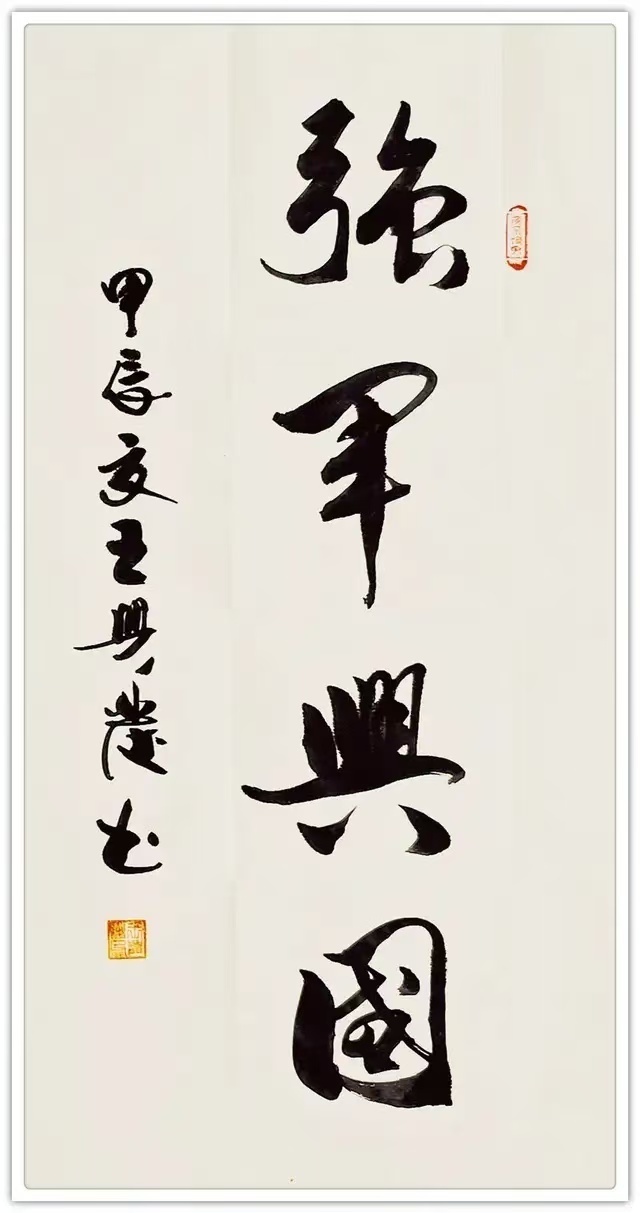 強軍興國
甲辰夏王興崗书